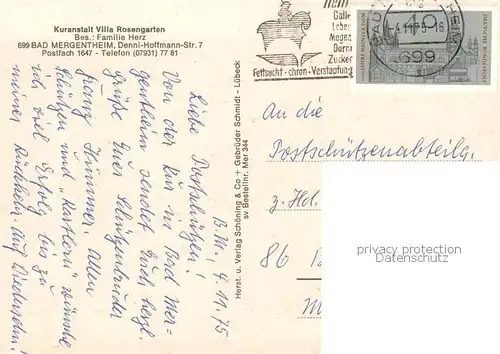 Kuranstalt Villa Rosengarten
Bes.: Familie Herz
699 BAD MERGENTHEIM, Denni-Hoffmann-Str. 7
Postfach 1647 - Telefon (07931) 77 81
B. M., 4. 11. 75
Liebe Postschützen!
Von der Kur in Bad Mer-
gentheim sendet Euch herzl.
Grüße Euer Schützenbruder
Franz Hümmer. Allen
Schützen und „Kartlern" wünsche
ich viel Erfolg bis zu
meiner Rückkehr. Auf Wiedersehn!
Herst. u. Verlag Schöning & Co + Gebrüder Schmidt - Lübeck
sv Bestellnr. Mer 344
Galle
Leber
Magen
Darm
Zucker
Fettsucht - chron. Verstopfung
4.11.75-16
699
An die
Postschützenabteilg.
z. Hd.
86 B
privacy protection
AnsichtskartenVersand.com